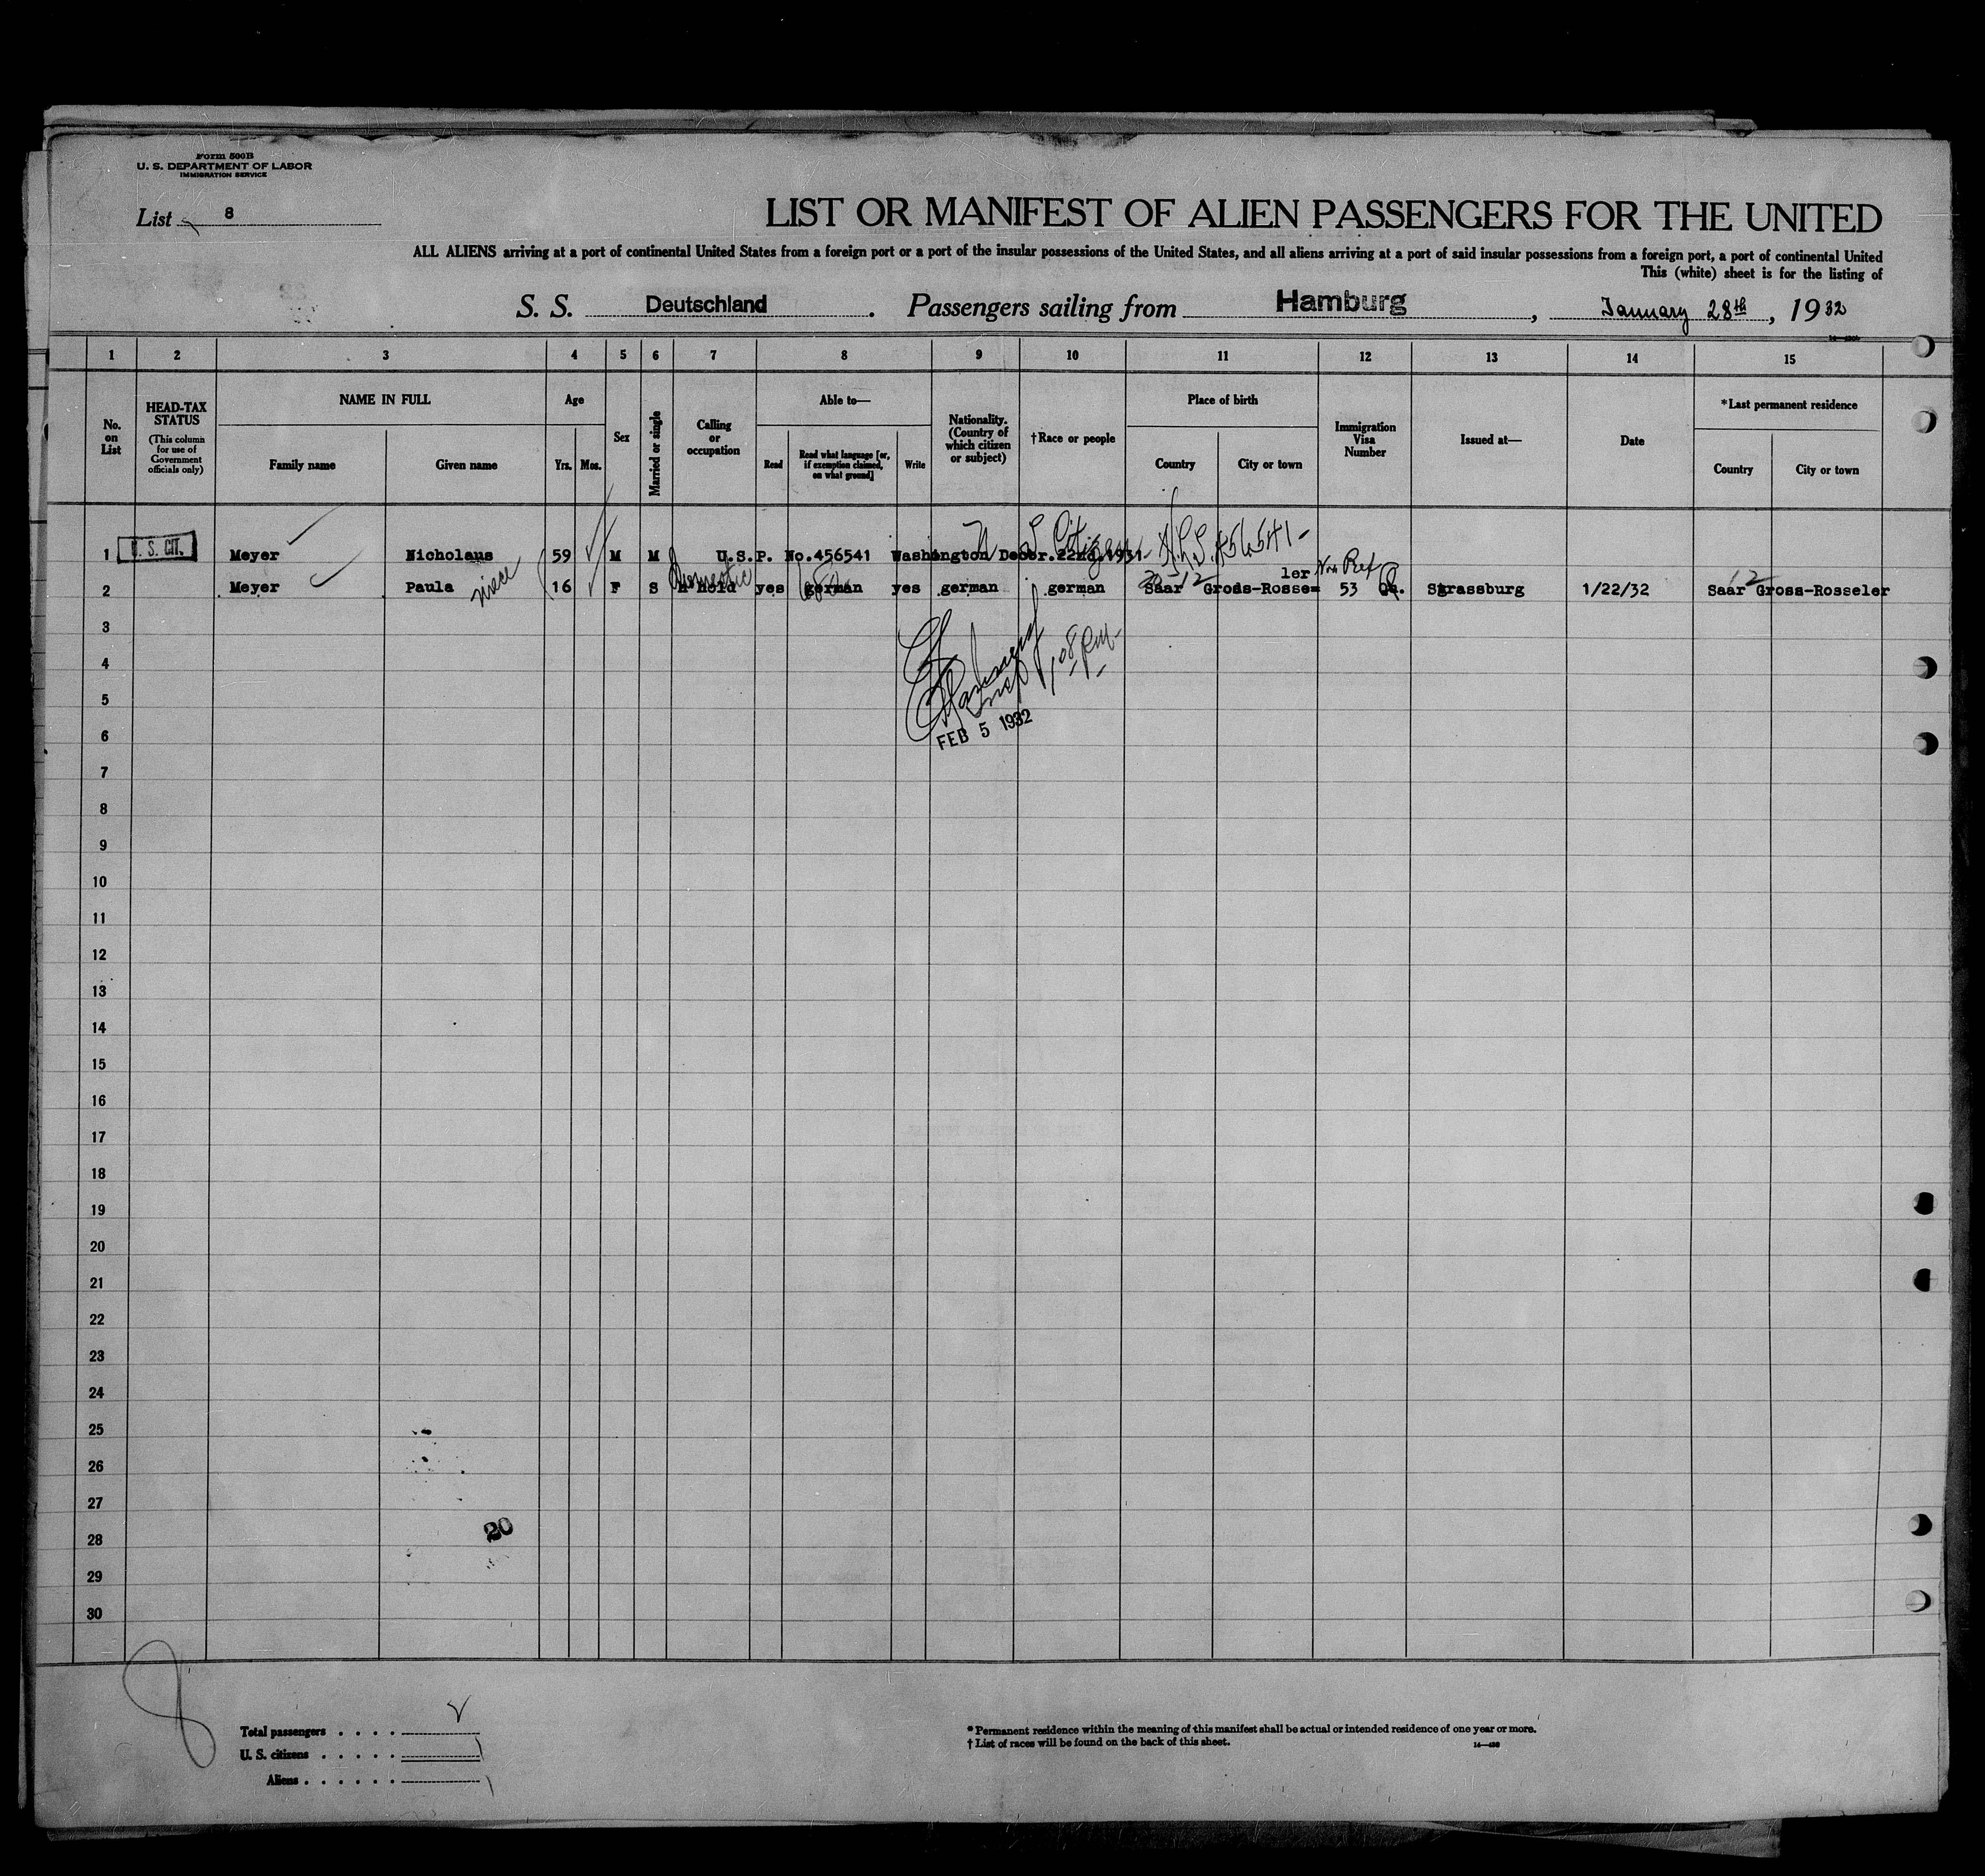 Form 500B
U. S. DEPARTMENT OF LABOR
IMMIGRATION SERVICE
List 8
LIST OR MANIFEST OF ALIEN PASSENGERS FOR THE UNITED
ALL ALIENS arriving at a port of continental United States from a foreign port or a port of the insular possessions of the United States, and all aliens arriving at a port of said insular possessions from a foreign port, a port of continental United
This (white) sheet is for the listing of
S. S. Deutschland. Passengers sailing from Hamburg, January 28th, 1932
1 2 3 4 5 6 7 8 9 10 11 12 13 14 15
No. on List
HEAD-TAX STATUS
(This column for use of Government officials only)
NAME IN FULL
Family name Given name
Age
Yrs. Mos.
Sex
Married or single
Calling or occupation
Able to—
Read Read what language [or, if exemption claimed, on what ground] Write
Nationality. (Country of which citizen or subject)
†Race or people
Place of birth
Country City or town
Immigration Visa Number
Issued at—
Date
*Last permanent residence
Country City or town
S Citizen
1 U. S. CIT. Meyer Nicholaus 59 M M U.S.P. No.456541 Washington Decbr.22nd.1931
Domestic 12 ler Non Pref 12
2 Meyer Paula niece 16 F S H'hold yes german yes german german Saar Gross-Rosse= 53 Qu. Strassburg 1/22/32 Saar Gross-Rosseler
3
4
1 08 PM
5
6
FEB 5 1932
7
8
9
10
11
12
13
14
15
16
17
18
19
20
21
22
23
24
25
26
27
20
28
29
30
8
Total passengers . . . . 2
U. S. citizens . . . . . 1
Aliens . . . . . . 1
* Permanent residence within the meaning of this manifest shall be actual or intended residence of one year or more.
† List of races will be found on the back of this sheet.